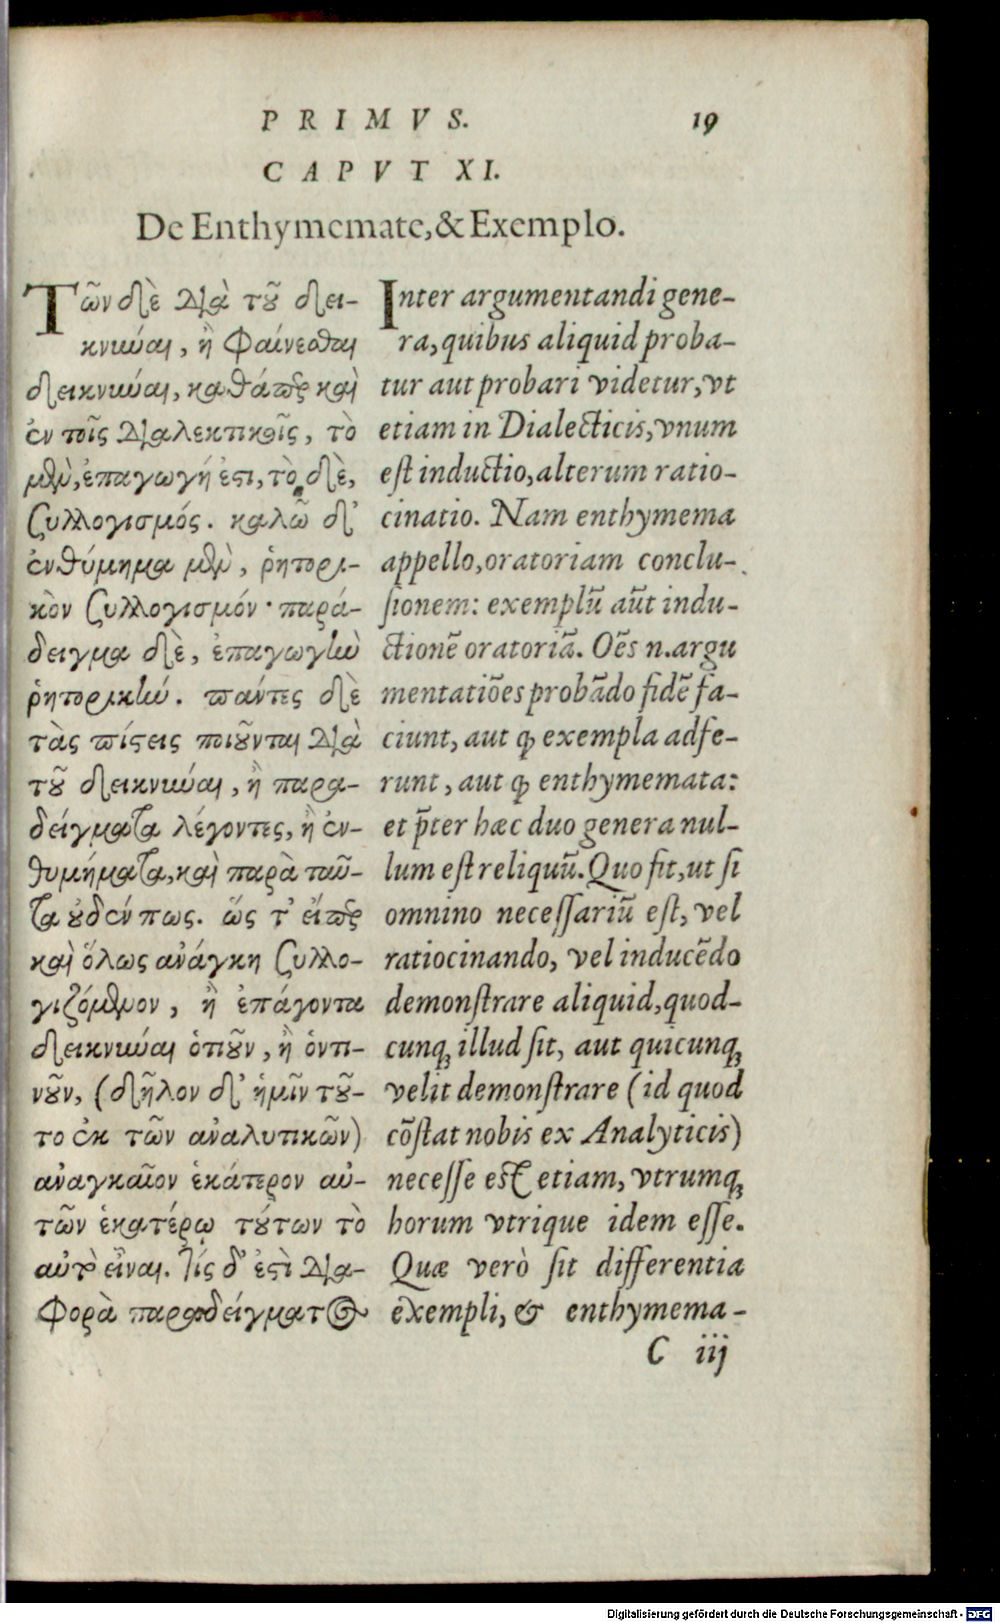 PRIMVS. 19
CAPVT XI.
De Enthymemate, & Exemplo.
Τῶν δὲ διὰ τοῦ δει-
κνύναι, ἢ φαίνεσθαι
δεικνύναι, καθάπερ καὶ
ἐν τοῖς διαλεκτικοῖς, τὸ
μὲν, ἐπαγωγή ἐστι, τὸ δὲ,
συλλογισμός. καλῶ δ'
ἐνθύμημα μὲν, ῥητορι-
κὸν συλλογισμόν· παρά-
δειγμα δὲ, ἐπαγωγὴν
ῥητορικήν. πάντες δὲ
τὰς πίστεις ποιοῦνται διὰ
τοῦ δεικνύναι, ἢ παρα-
δείγματα λέγοντες, ἢ ἐν-
θυμήματα, καὶ παρὰ ταῦ-
τα οὐδέν πως. ὥς τ' εἴπερ
καὶ ὅλως ἀνάγκη συλλο-
γιζόμενον, ἢ ἐπάγοντα
δεικνύναι ὁτιοῦν, ἢ ὁντι-
νοῦν, (δῆλον δ' ἡμῖν τοῦ-
το ἐκ τῶν ἀναλυτικῶν)
ἀναγκαῖον ἑκάτερον αὐ-
τῶν ἑκατέρῳ τούτων τὸ
αὐτὸ εἶναι. τίς δ' ἐστὶ δια-
φορὰ παραδείγματος
Inter argumentandi gene-
ra, quibus aliquid proba-
tur aut probari videtur, vt
etiam in Dialecticis, vnum
est inductio, alterum ratio-
cinatio. Nam enthymema
appello, oratoriam conclu-
sionem: exemplū aūt indu-
ctionē oratoriā. Oēs n. argu
mentatiōes probādo fidē fa-
ciunt, aut ꝙ exempla adfe-
runt, aut ꝙ enthymemata:
et p̄ter hæc duo genera nul-
lum est reliquū. Quo fit, ut si
omnino necessariū est, vel
ratiocinando, vel inducēdo
demonstrare aliquid, quod-
cunq; illud sit, aut quicunq;
velit demonstrare (id quod
cōstat nobis ex Analyticis)
necesse est etiam, vtrumq;
horum vtrique idem esse.
Quæ verò sit differentia
exempli, & enthymema-
C iij
Digitalisierung gefördert durch die Deutsche Forschungsgemeinschaft - DFG